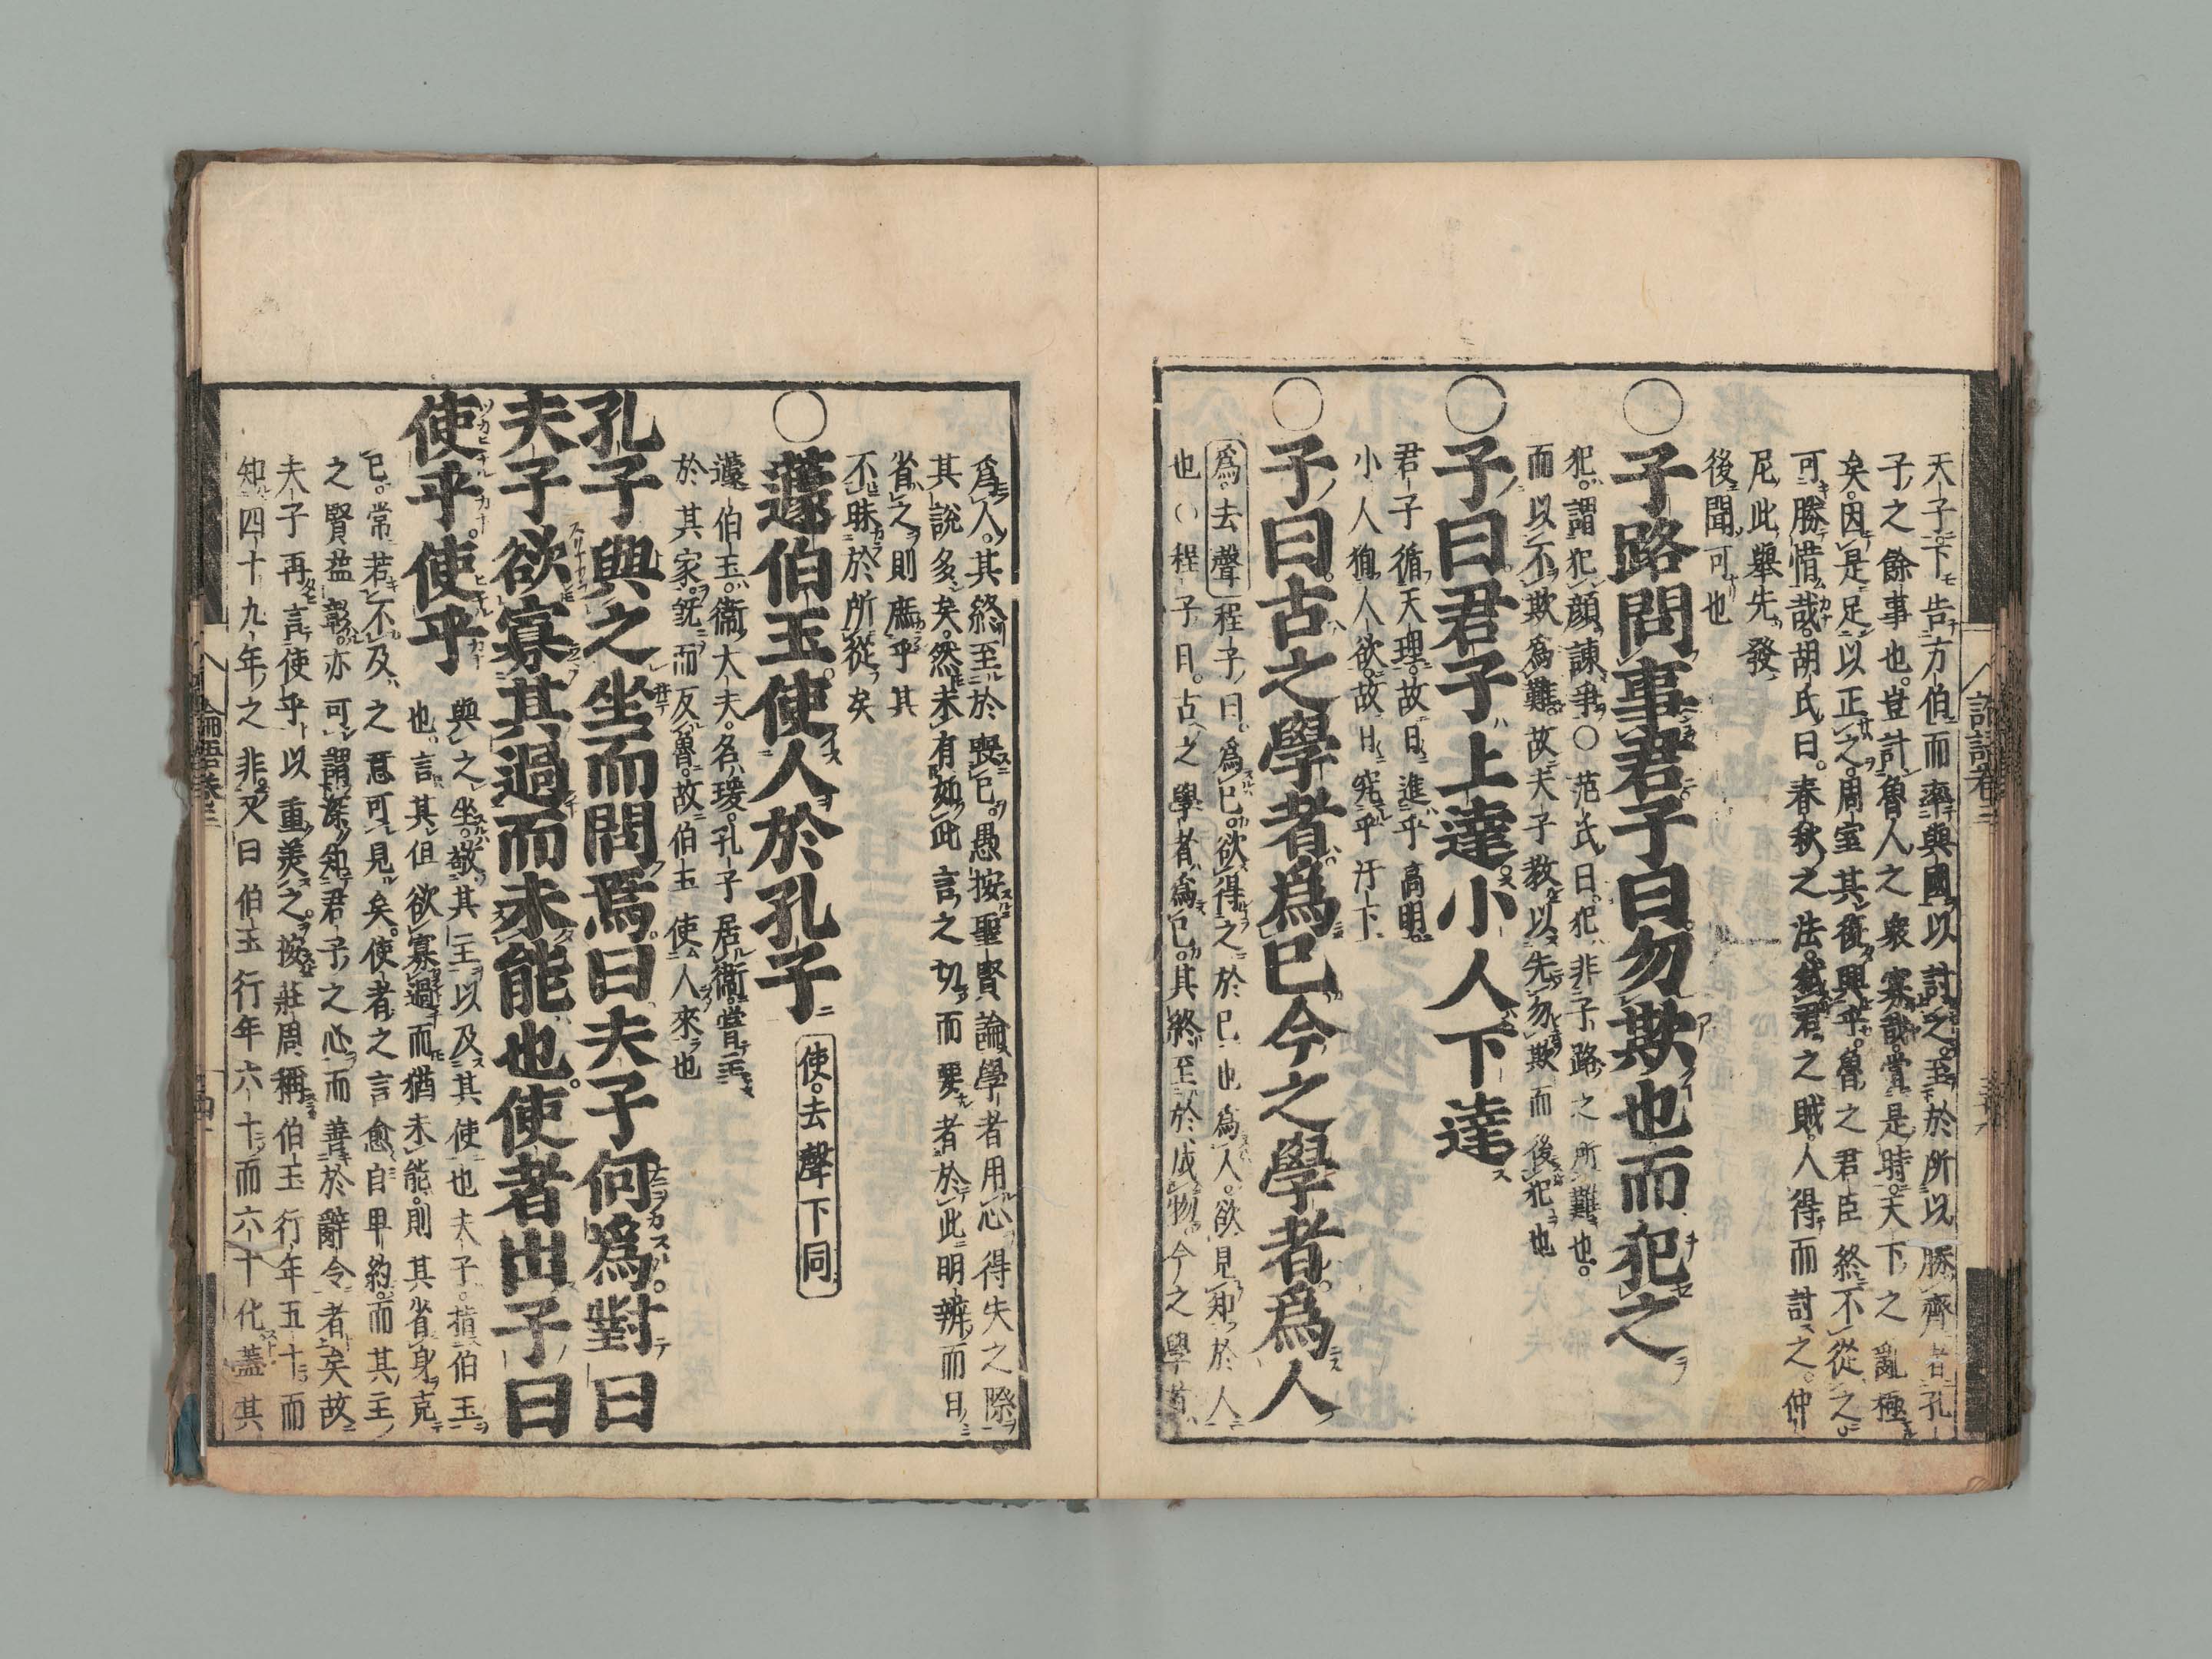 天子下告方伯而率與國以討之至於所以勝齊者孔
子之餘事也豈計魯人之衆寡哉當是時天下之亂極
矣因是足以正之周室其復興乎魯之君臣終不從之
可勝惜哉胡氏曰春秋之法弑君之賊人得而討之仲
尼此舉先發
後聞可也
○子路問事君子曰勿欺也而犯之
犯謂犯顔諫爭○范氏曰犯非子路之所難也
而以不欺爲難故夫子教以先勿欺而後犯也
○子曰君子上達小人下達
君子循天理故日進乎高明
小人徇人欲故日究乎汙下
○子曰古之學者爲己今之學者爲人
爲去聲程子曰爲己欲得之於己也爲人欲見知於人
也○程子曰古之學者爲己其終至於成物今之學者
爲人其終至於喪己愚按聖賢論學者用心得失之際
其說多矣然未有如此言之切而要者於此明辨而日
省之則庶乎其
不昧於所從矣
○蘧伯玉使人於孔子 使去聲下同
蘧伯玉衞大夫名瑗孔子居衞嘗主
於其家旣而反魯故伯玉使人來也
孔子與之坐而問焉曰夫子何爲對曰
夫子欲寡其過而未能也使者出子曰
使乎使乎
與之坐敬其主以及其使也夫子指伯玉
也言其但欲寡過而猶未能則其省身克
己常若不及之意可見矣使者之言愈自卑約而其主
之賢益彰亦可謂深知君子之心而善於辭令者矣故
夫子再言使乎以重美之按莊周稱伯玉行年五十而
知四十九年之非又曰伯玉行年六十而六十化蓋其
論語卷三